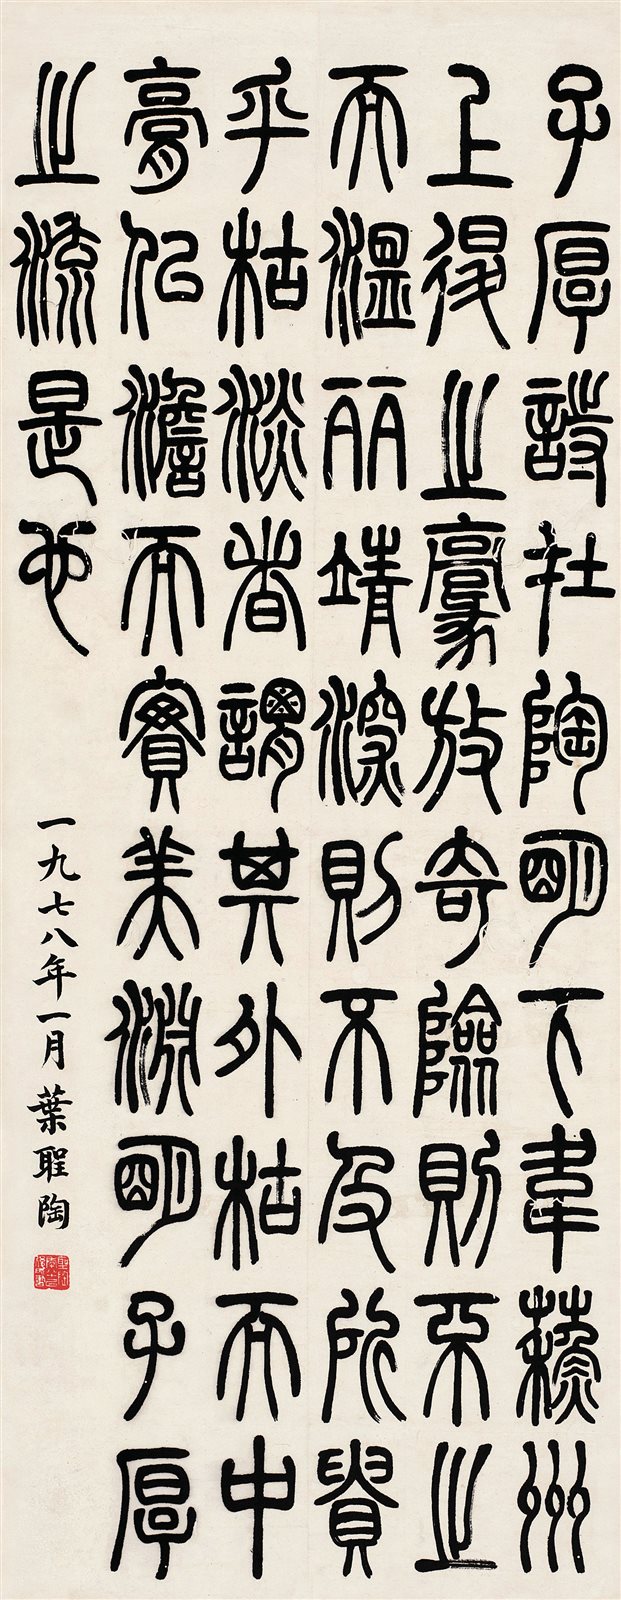 子厚詩在陶明下韋蘇州
上退之豪放奇險則之
而溫麗靖深則不及所貴
乎枯淡者謂其外枯而中
膏似澹而實美淵明子厚
之流是也
一九七八年一月葉聖陶